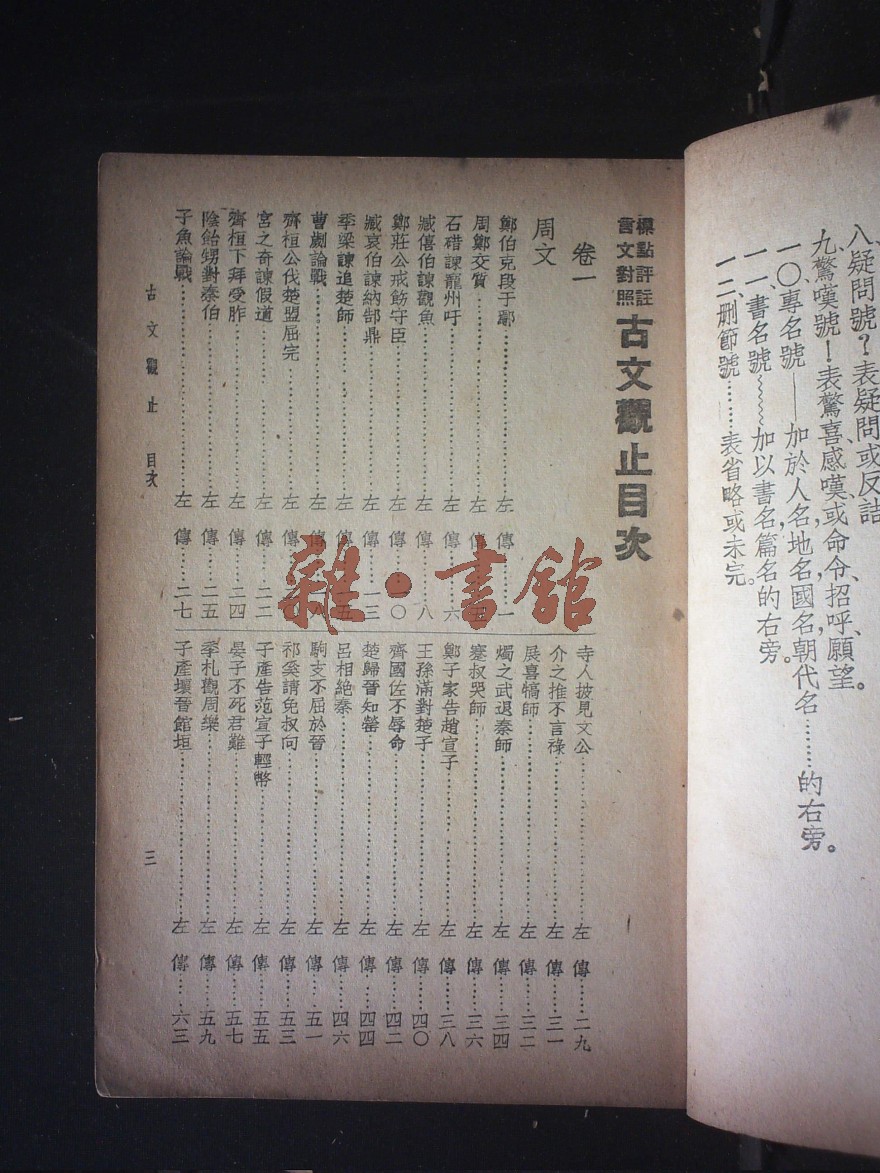 八、疑問號？表疑問或反詰
九、驚嘆號！表驚喜、感嘆、或命令、招呼、願望。
一〇、專名號——加於人名，地名，國名，朝代名………的右旁。
一一、書名號﹏﹏加以書名，篇名的右旁。
一二、刪節號……表省略或未完。
標點評註
言文對照
古文觀止目次
卷一
周文
鄭伯克段于鄢……左傳……一
周鄭交質……左傳
石碏諫寵州吁……左傳……六
臧僖伯諫觀魚……左傳……八
鄭莊公戒飭守臣……左傳……一〇
臧哀伯諫納郜鼎……左傳……一三
季梁諫追楚師……左傳
曹劌論戰……左傳
齊桓公伐楚盟屈完……左傳
宮之奇諫假道……左傳……二二
齊桓下拜受胙……左傳……二四
陰飴甥對秦伯……左傳……二五
子魚論戰……左傳……二七
寺人披見文公……左傳……二九
介之推不言祿……左傳……三一
展喜犒師……左傳……三二
燭之武退秦師……左傳……三四
蹇叔哭師……左傳……三六
鄭子家告趙宣子……左傳……三八
王孫滿對楚子……左傳……四〇
齊國佐不辱命……左傳……四二
楚歸晉知罃……左傳……四四
呂相絕秦……左傳……四六
駒支不屈於晉……左傳……五一
祁奚請免叔向……左傳……五三
子產告范宣子輕幣……左傳……五五
晏子不死君難……左傳……五七
季札觀周樂……左傳……五九
子產壞晉館垣……左傳……六三
古文觀止 目次
三
雜·書館